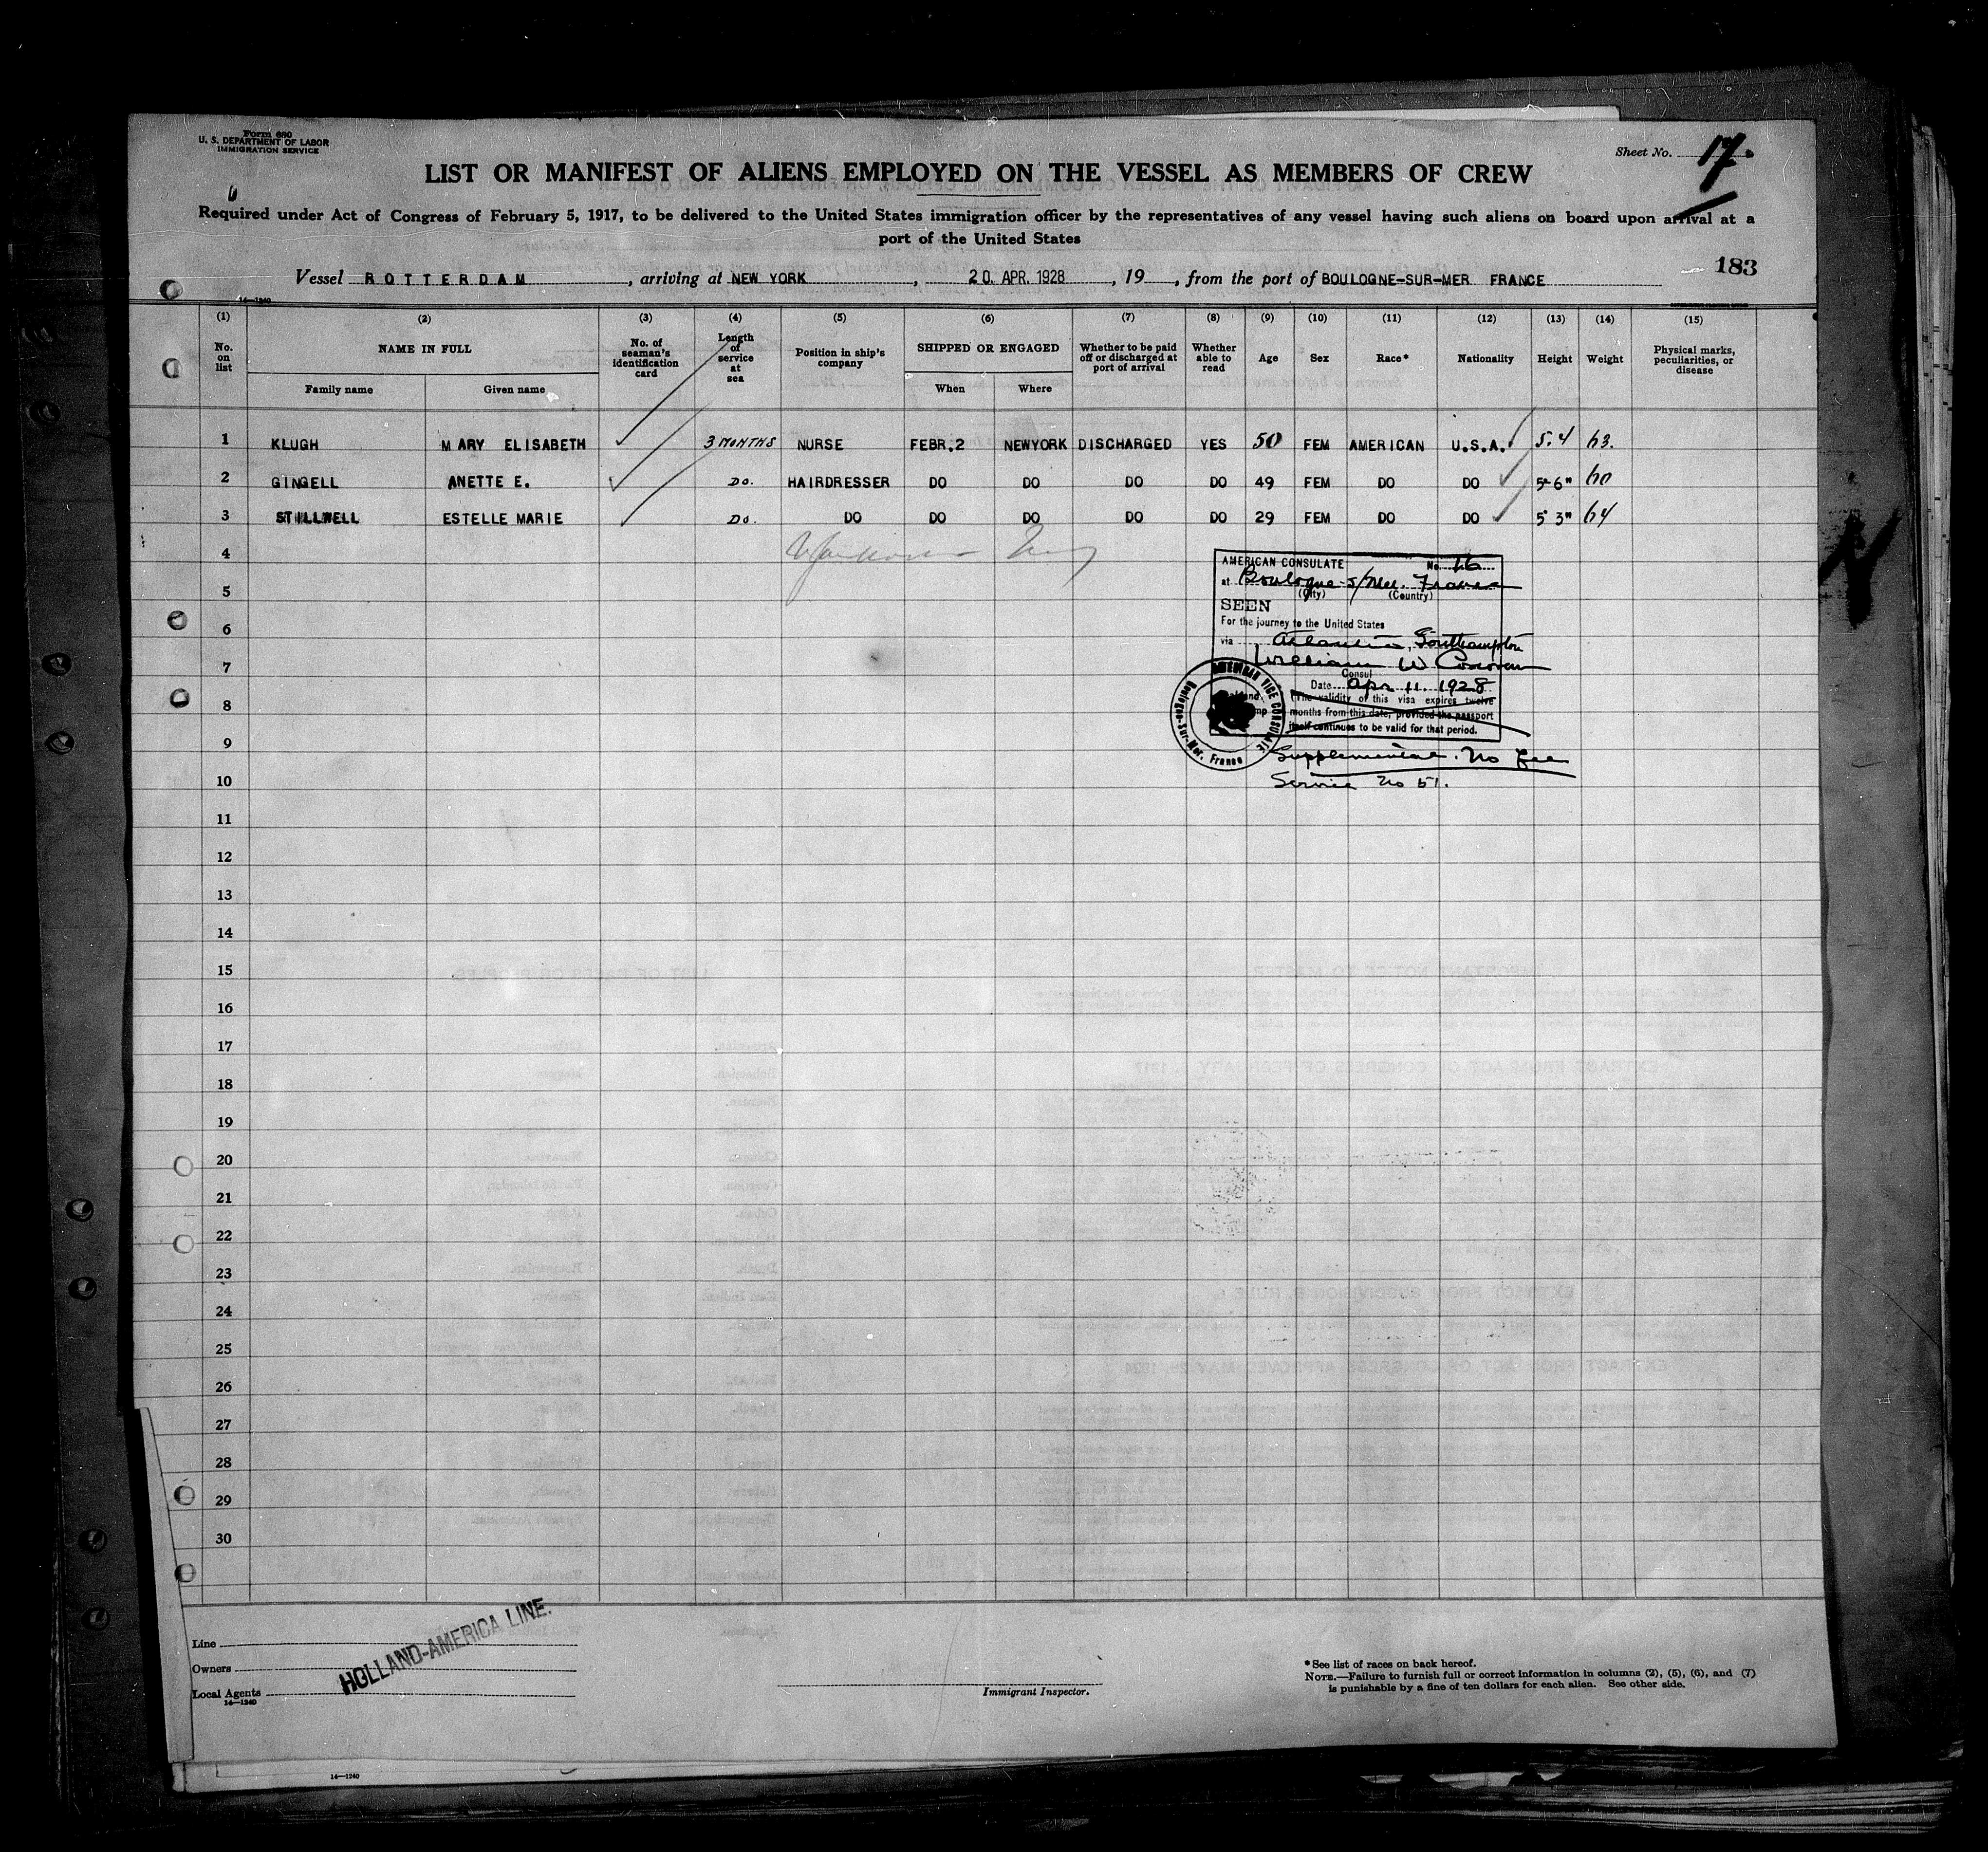 Form 680
U. S. DEPARTMENT OF LABOR
IMMIGRATION SERVICE
Sheet No. 17.
LIST OR MANIFEST OF ALIENS EMPLOYED ON THE VESSEL AS MEMBERS OF CREW
Required under Act of Congress of February 5, 1917, to be delivered to the United States immigration officer by the representatives of any vessel having such aliens on board upon arrival at a
port of the United States
183
Vessel ROTTERDAM, arriving at NEW YORK, 20. APR. 1928, 19, from the port of BOULOGNE-SUR-MER FRANCE
14—1240
(1) (2) (3) (4) (5) (6) (7) (8) (9) (10) (11) (12) (13) (14) (15)
No. on list NAME IN FULL No. of seaman's identification card Length of service at sea Position in ship's company SHIPPED OR ENGAGED Whether to be paid off or discharged at port of arrival Whether able to read Age Sex Race* Nationality Height Weight Physical marks, peculiarities, or disease
Family name Given name When Where
1 KLUGH MARY ELISABETH 3 MONTHS NURSE FEBR.2 NEWYORK DISCHARGED YES 50 FEM AMERICAN U.S.A. 5.4 63.
2 GINGELL ANETTE E. DO. HAIRDRESSER DO DO DO DO 49 FEM DO DO 5-6" 60
3 STILLWELL ESTELLE MARIE DO. DO DO DO DO DO 29 FEM DO DO 5 3" 64
4
5
6
7
8
9
10
11
12
13
14
15
16
17
18
19
20
21
22
23
24
25
26
27
28
29
30
AMERICAN CONSULATE No. 16
at Boulogne-s/Mer. France
(City) (Country)
SEEN
For the journey to the United States
via Atlantic, Southampton
William W Corcoran
Consul
Date Apr 11. 1928
(The validity of this visa expires twelve
months from this date, provided the passport
itself continues to be valid for that period.
AMERICAN VICE CONSULATE
Boulogne-Sur-Mer, France
Supplemental. No fee
Service No 51.
Line
Owners
Local Agents
14—1240
HOLLAND-AMERICA LINE.
Immigrant Inspector.
*See list of races on back hereof.
NOTE.—Failure to furnish full or correct information in columns (2), (5), (6), and (7)
is punishable by a fine of ten dollars for each alien. See other side.
14—1240